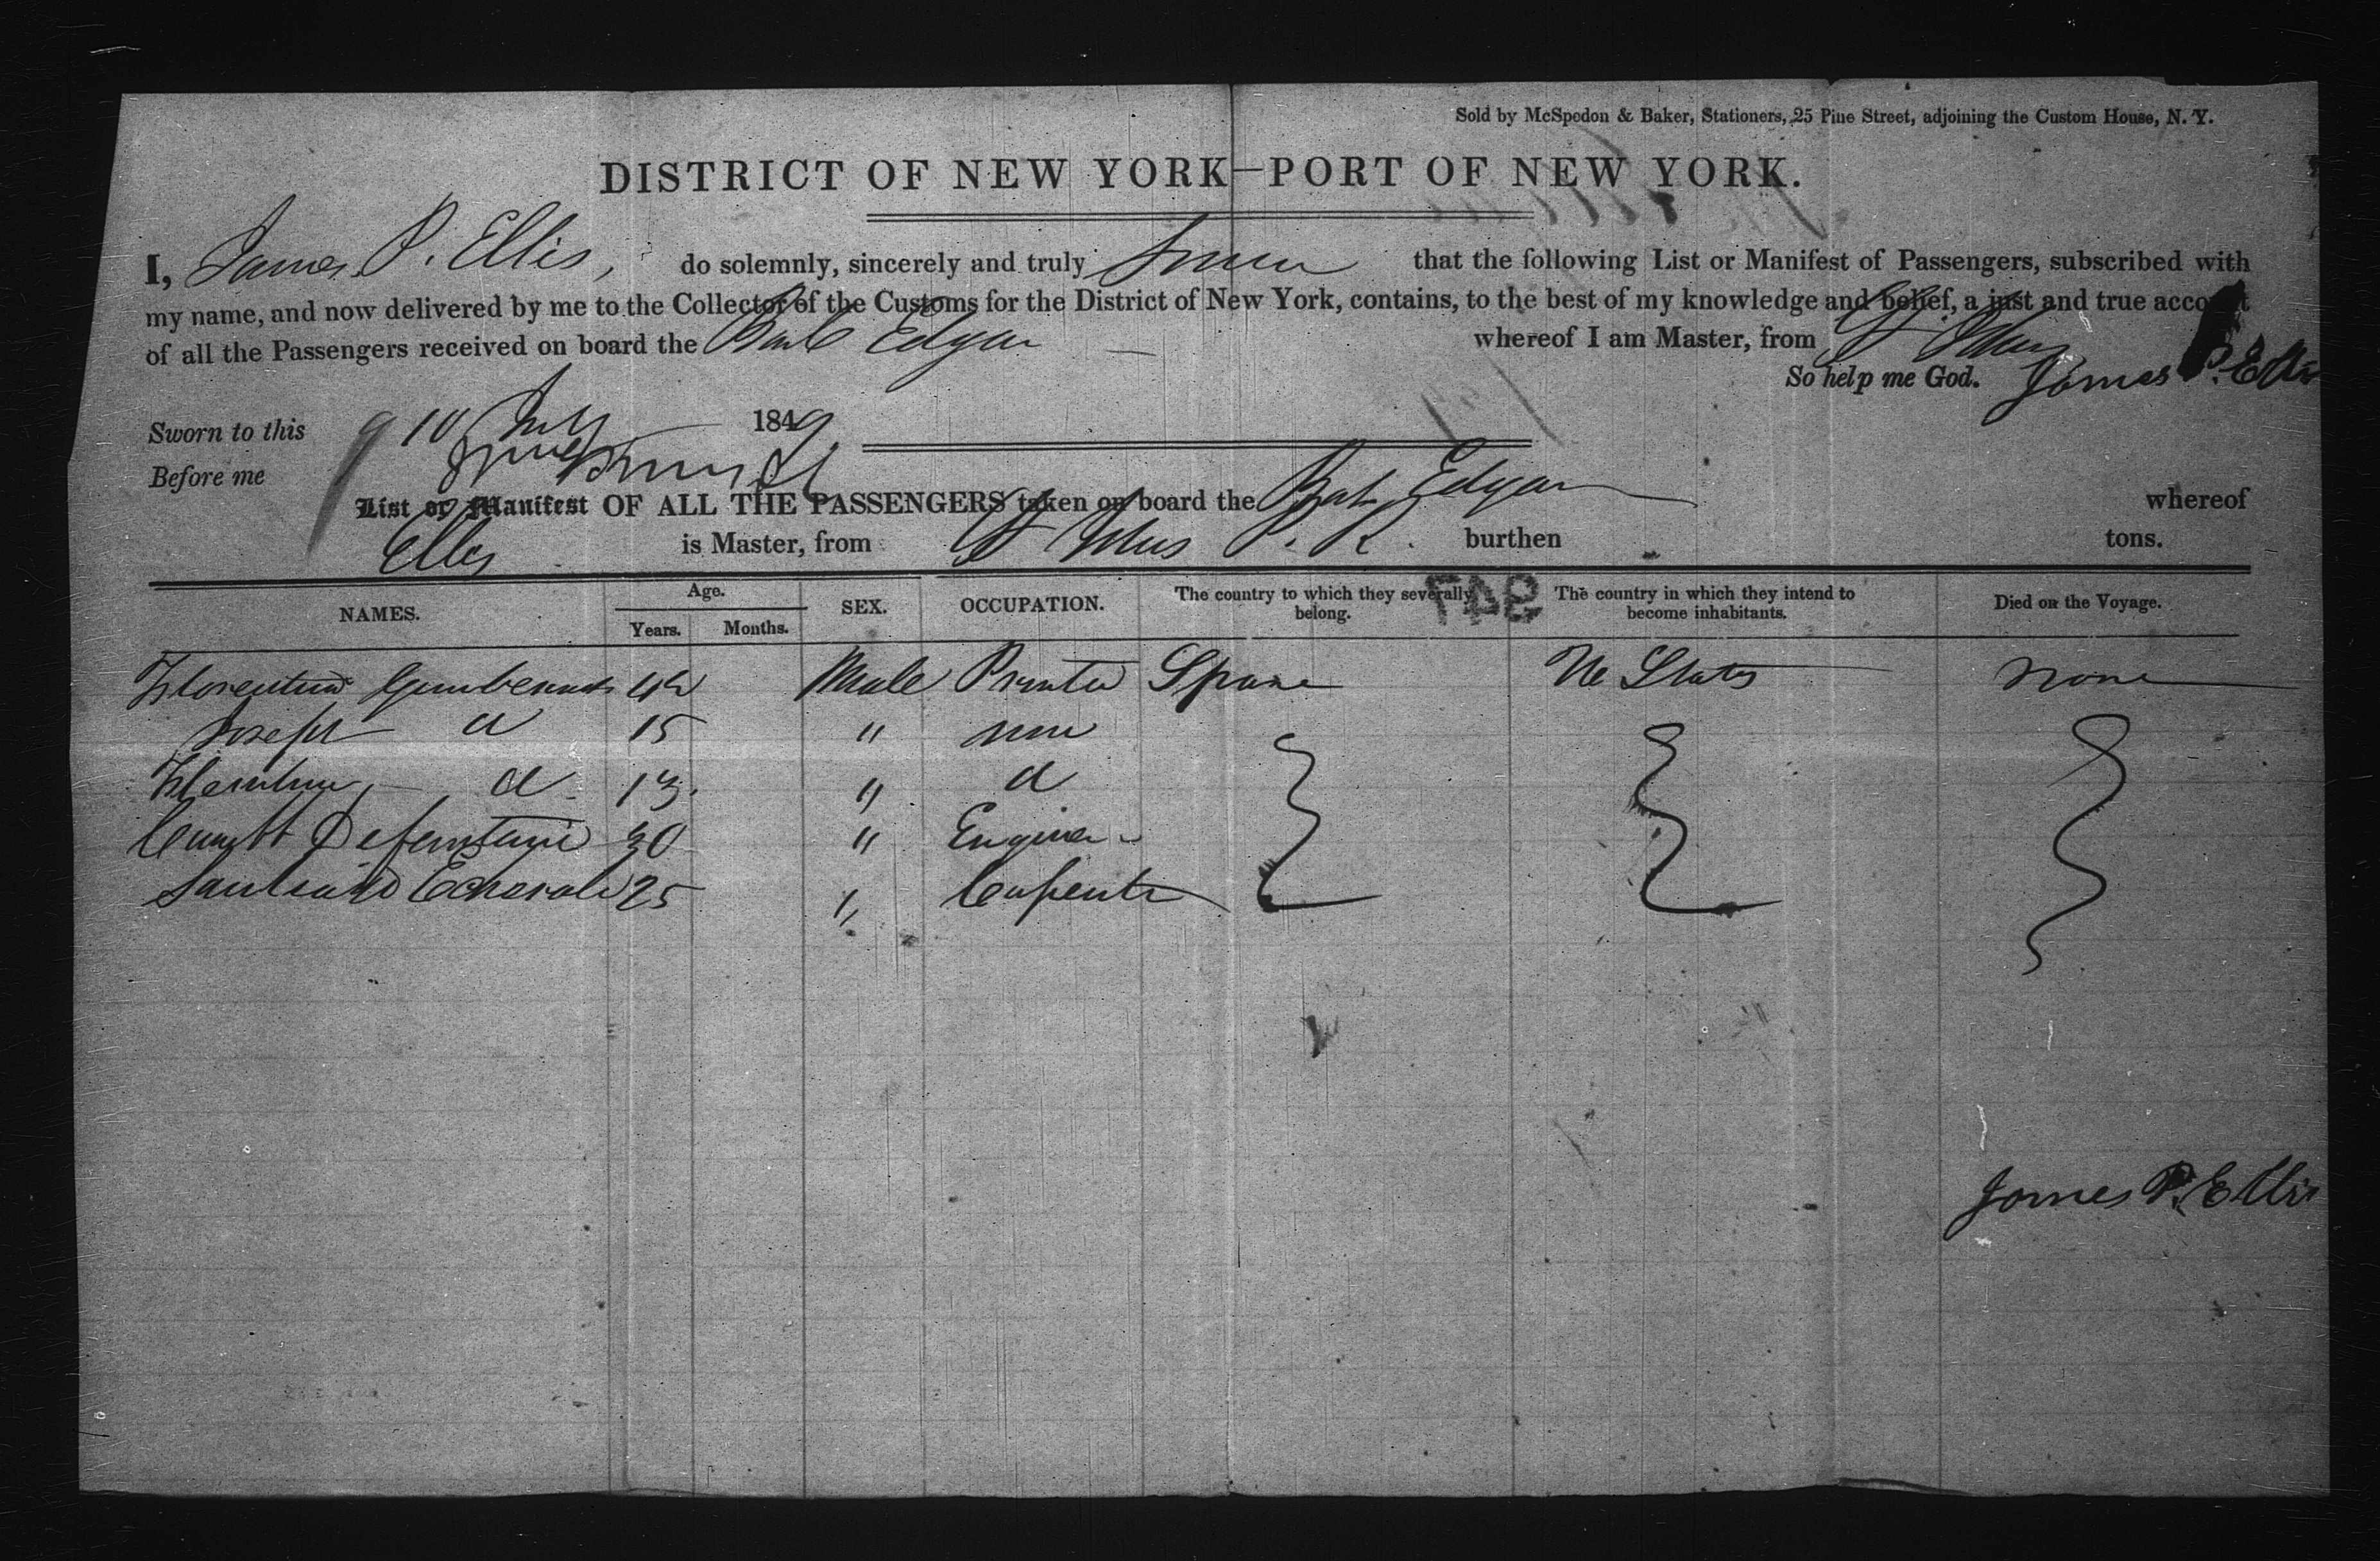 Sold by McSpedon & Baker, Stationers, 25 Pine Street, adjoining the Custom House, N. Y.
DISTRICT OF NEW YORK—PORT OF NEW YORK.
I, James P. Ellis, do solemnly, sincerely and truly swear that the following List or Manifest of Passengers, subscribed with
my name, and now delivered by me to the Collector of the Customs for the District of New York, contains, to the best of my knowledge and belief, a just and true account
of all the Passengers received on board the Bark Edgar whereof I am Master, from St Johns
So help me God. James P. Ellis
Sworn to this 10 July 1849
Before me
List or Manifest OF ALL THE PASSENGERS taken on board the Bark Edgar whereof
Ellis is Master, from St Johns P. R. burthen tons.
NAMES. Age. Years. Months. SEX. OCCUPATION. The country to which they severally belong. 347 The country in which they intend to become inhabitants. Died on the Voyage.
42 Male Printer Spain U States none
Joseph d 15 " none
d 13 " d
30 " Engineer
25 " Carpenter
James P. Ellis